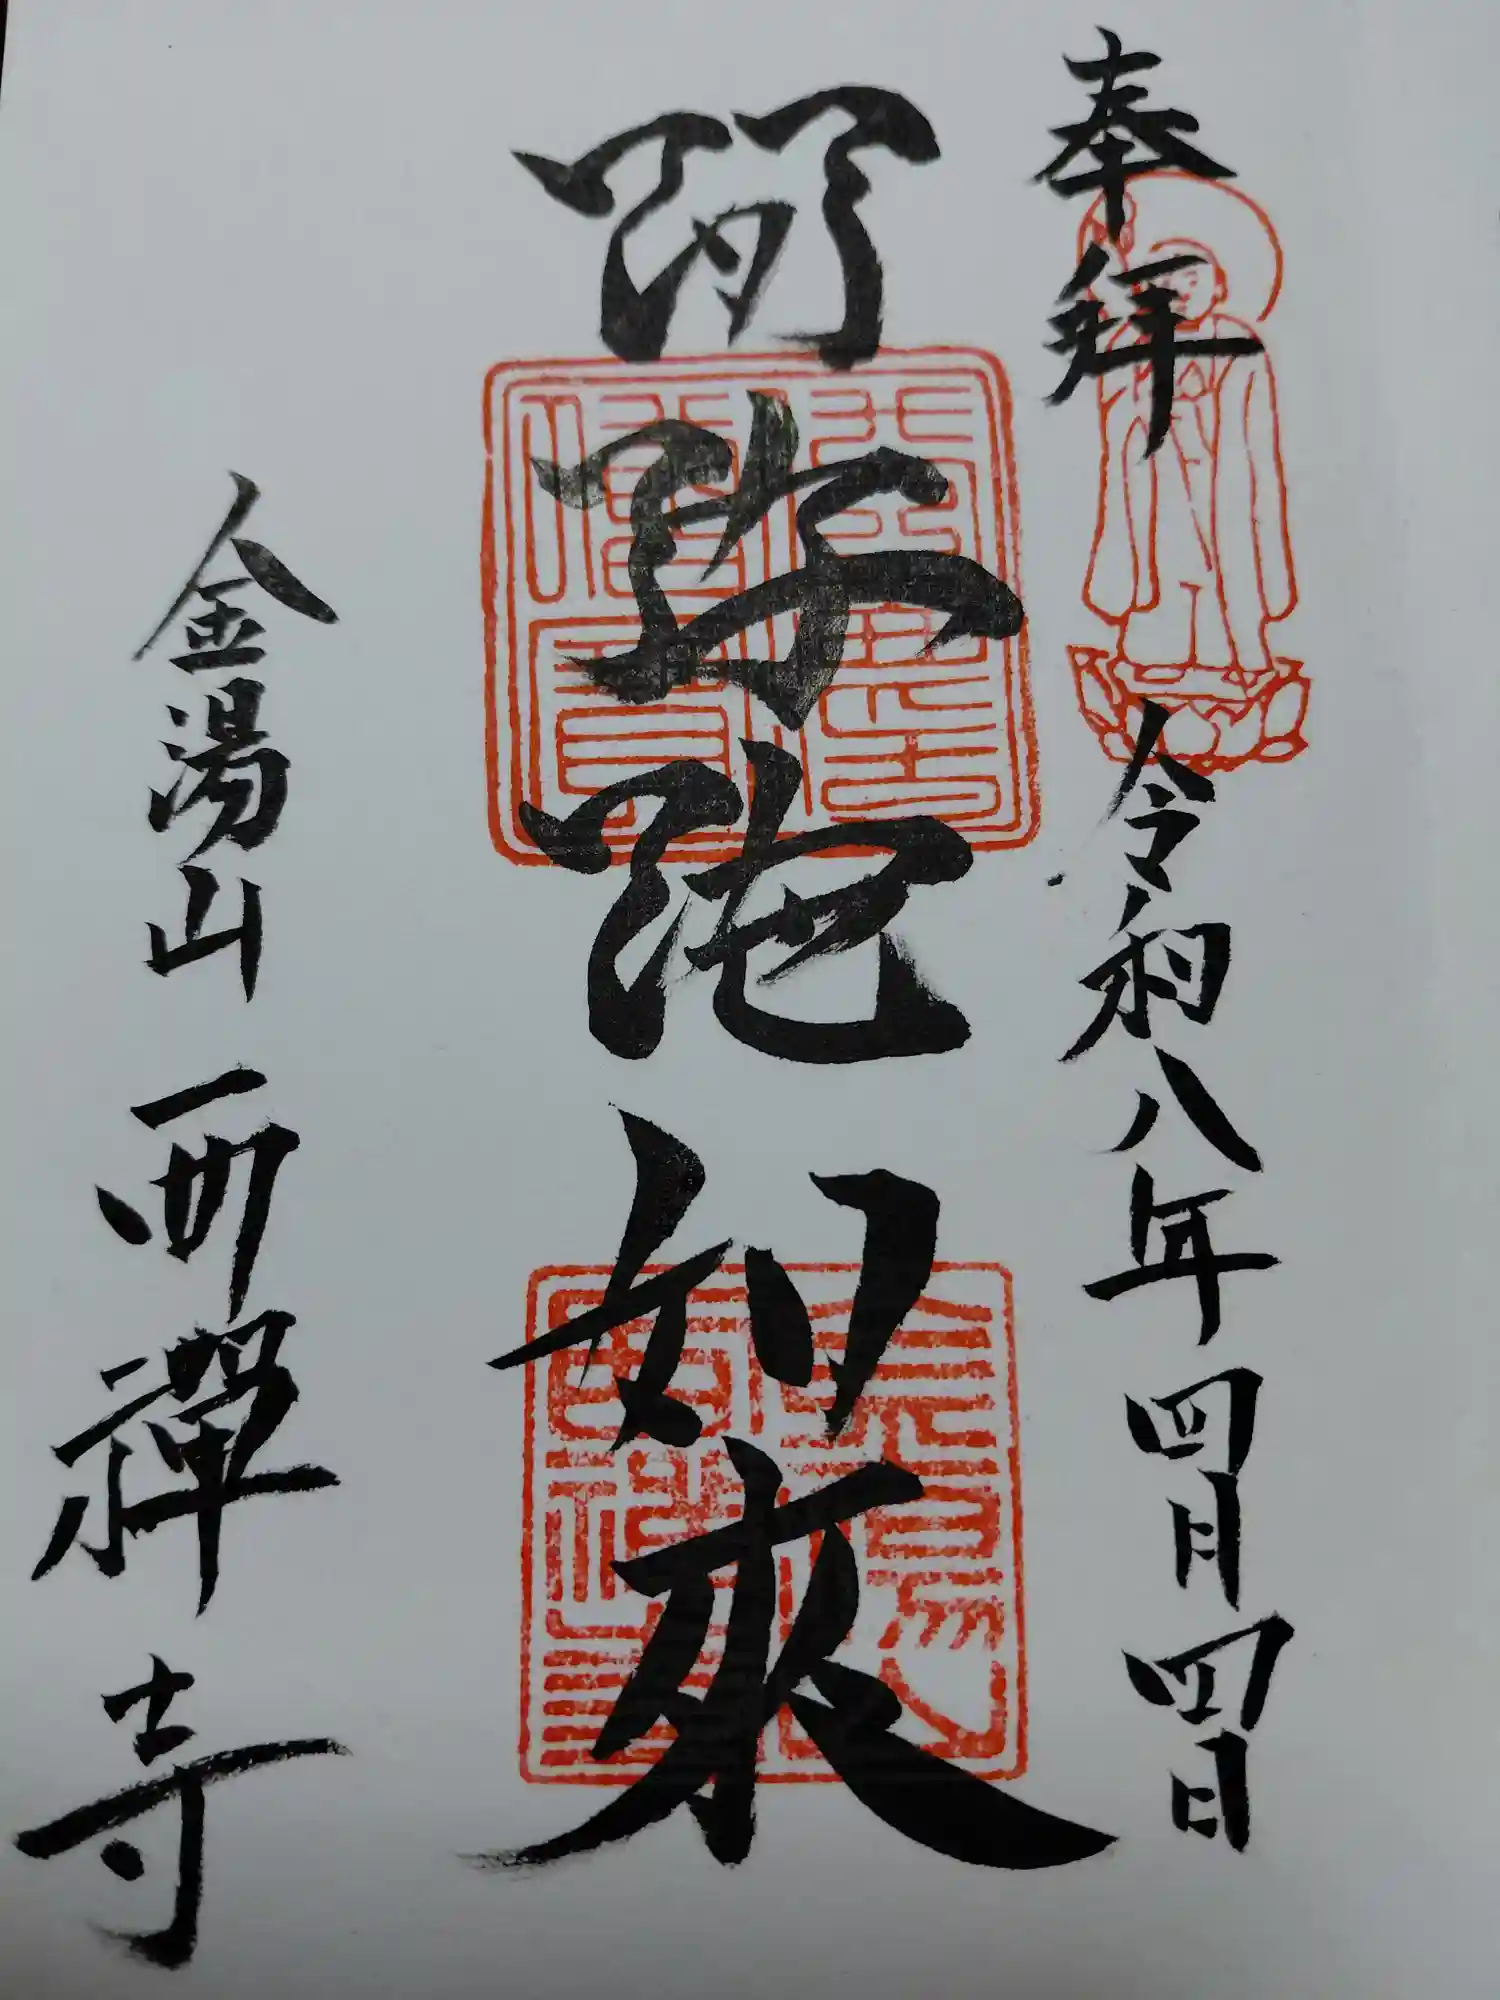 奉拝
令和八年四月四日
阿弥陀如来
金湯山西禅寺